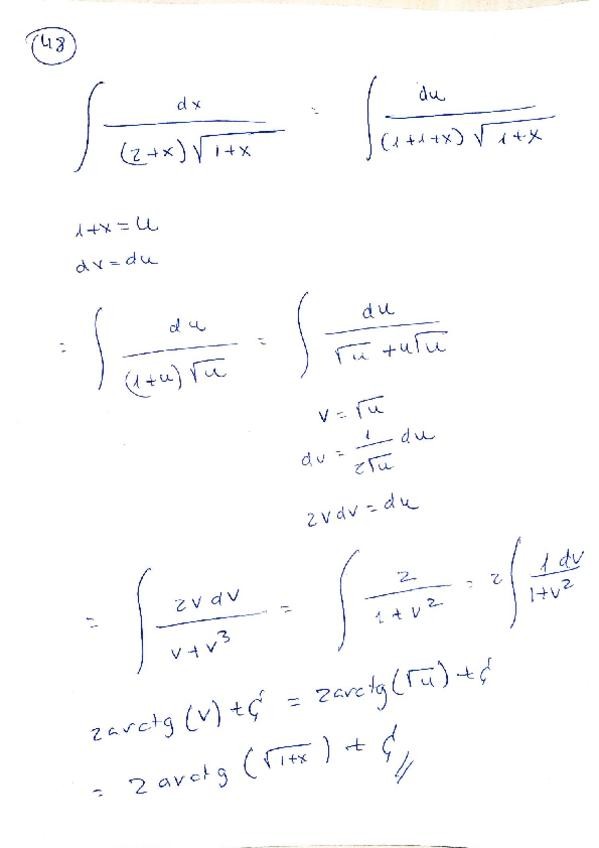 48
∫ dx / (2+x)√1+x = ∫ du / (1+1+x)√1+x
1+x = u
dv = du
= ∫ du / (1+u)√u = ∫ du / √u + u√u
v = √u
dv = 1 / 2√u du
2v dv = du
= ∫ 2v dv / v+v³ = ∫ 2 / 1+v² = 2 ∫ 1 dv / 1+v²
2 arctg (v) + C = 2 arctg (√u) + C
= 2 arctg (√1+x) + C //